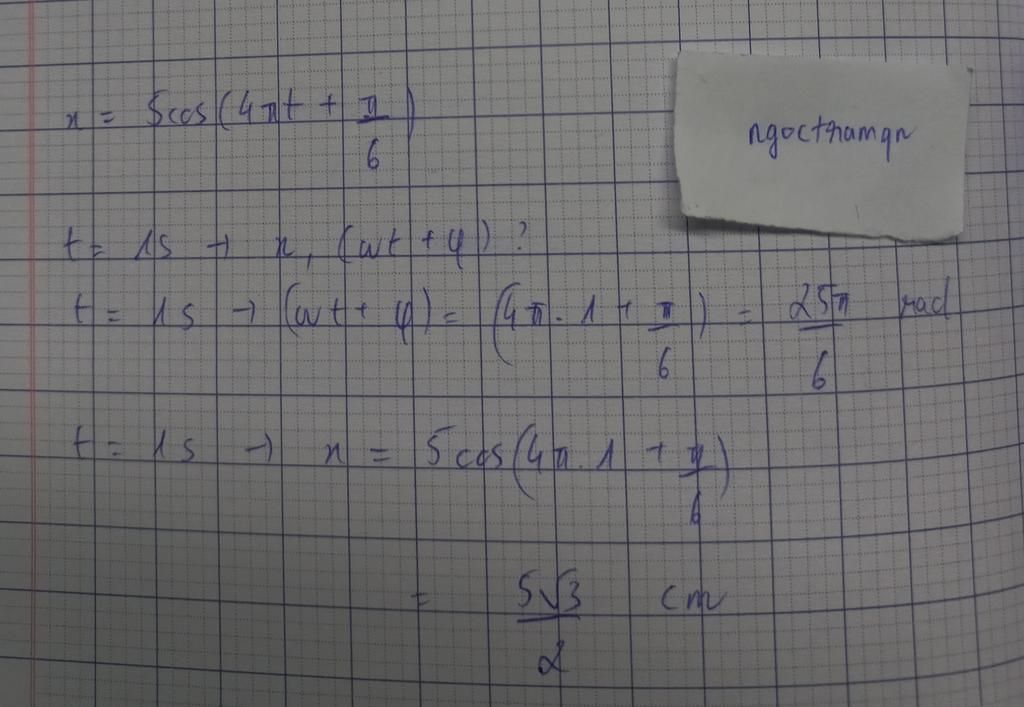 x = 5cos(4πt + π/6)
ngocthamqn
t = 1s → x, (ωt + φ)?
t = 1s → (ωt + φ) = (4π. 1 + π/6) = 25π/6 rad
t = 1s → x = 5cos(4π. 1 + π/6)
= 5√3/2 cm